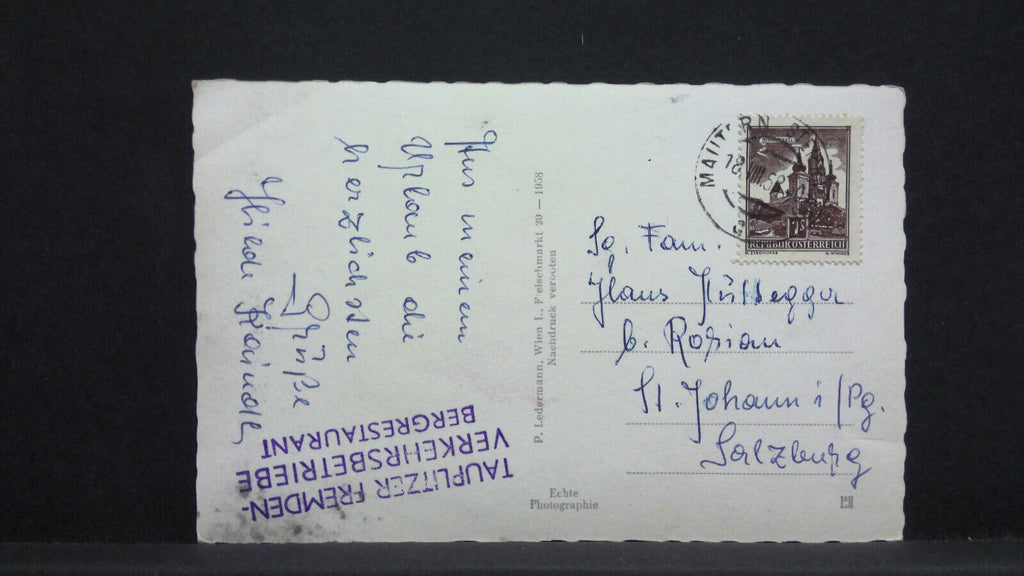 Aus meinem
Urlaub die
herzlichsten
Grüße
Hilde
TAUPLITZER FREMDEN-
VERKEHRSBETRIEBE
BERGRESTAURANT
P. Ledermann, Wien I., Fleischmarkt 20 — 1958
Nachdruck verboten
Echte
Photographie
MAUTERN
18.VIII.
1S
REPUBLIK ÖSTERREICH
Fam.
Hans Hüttegger
b.
St. Johann i/Pg.
Salzburg